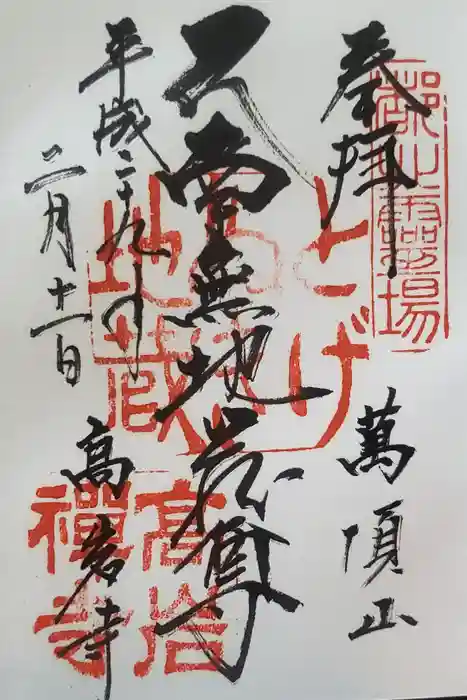 奉拝
萬頂山
南無地蔵尊
平成二十九年
二月十一日
高岩寺
靈場
とげぬき
地蔵
高岩
禪寺